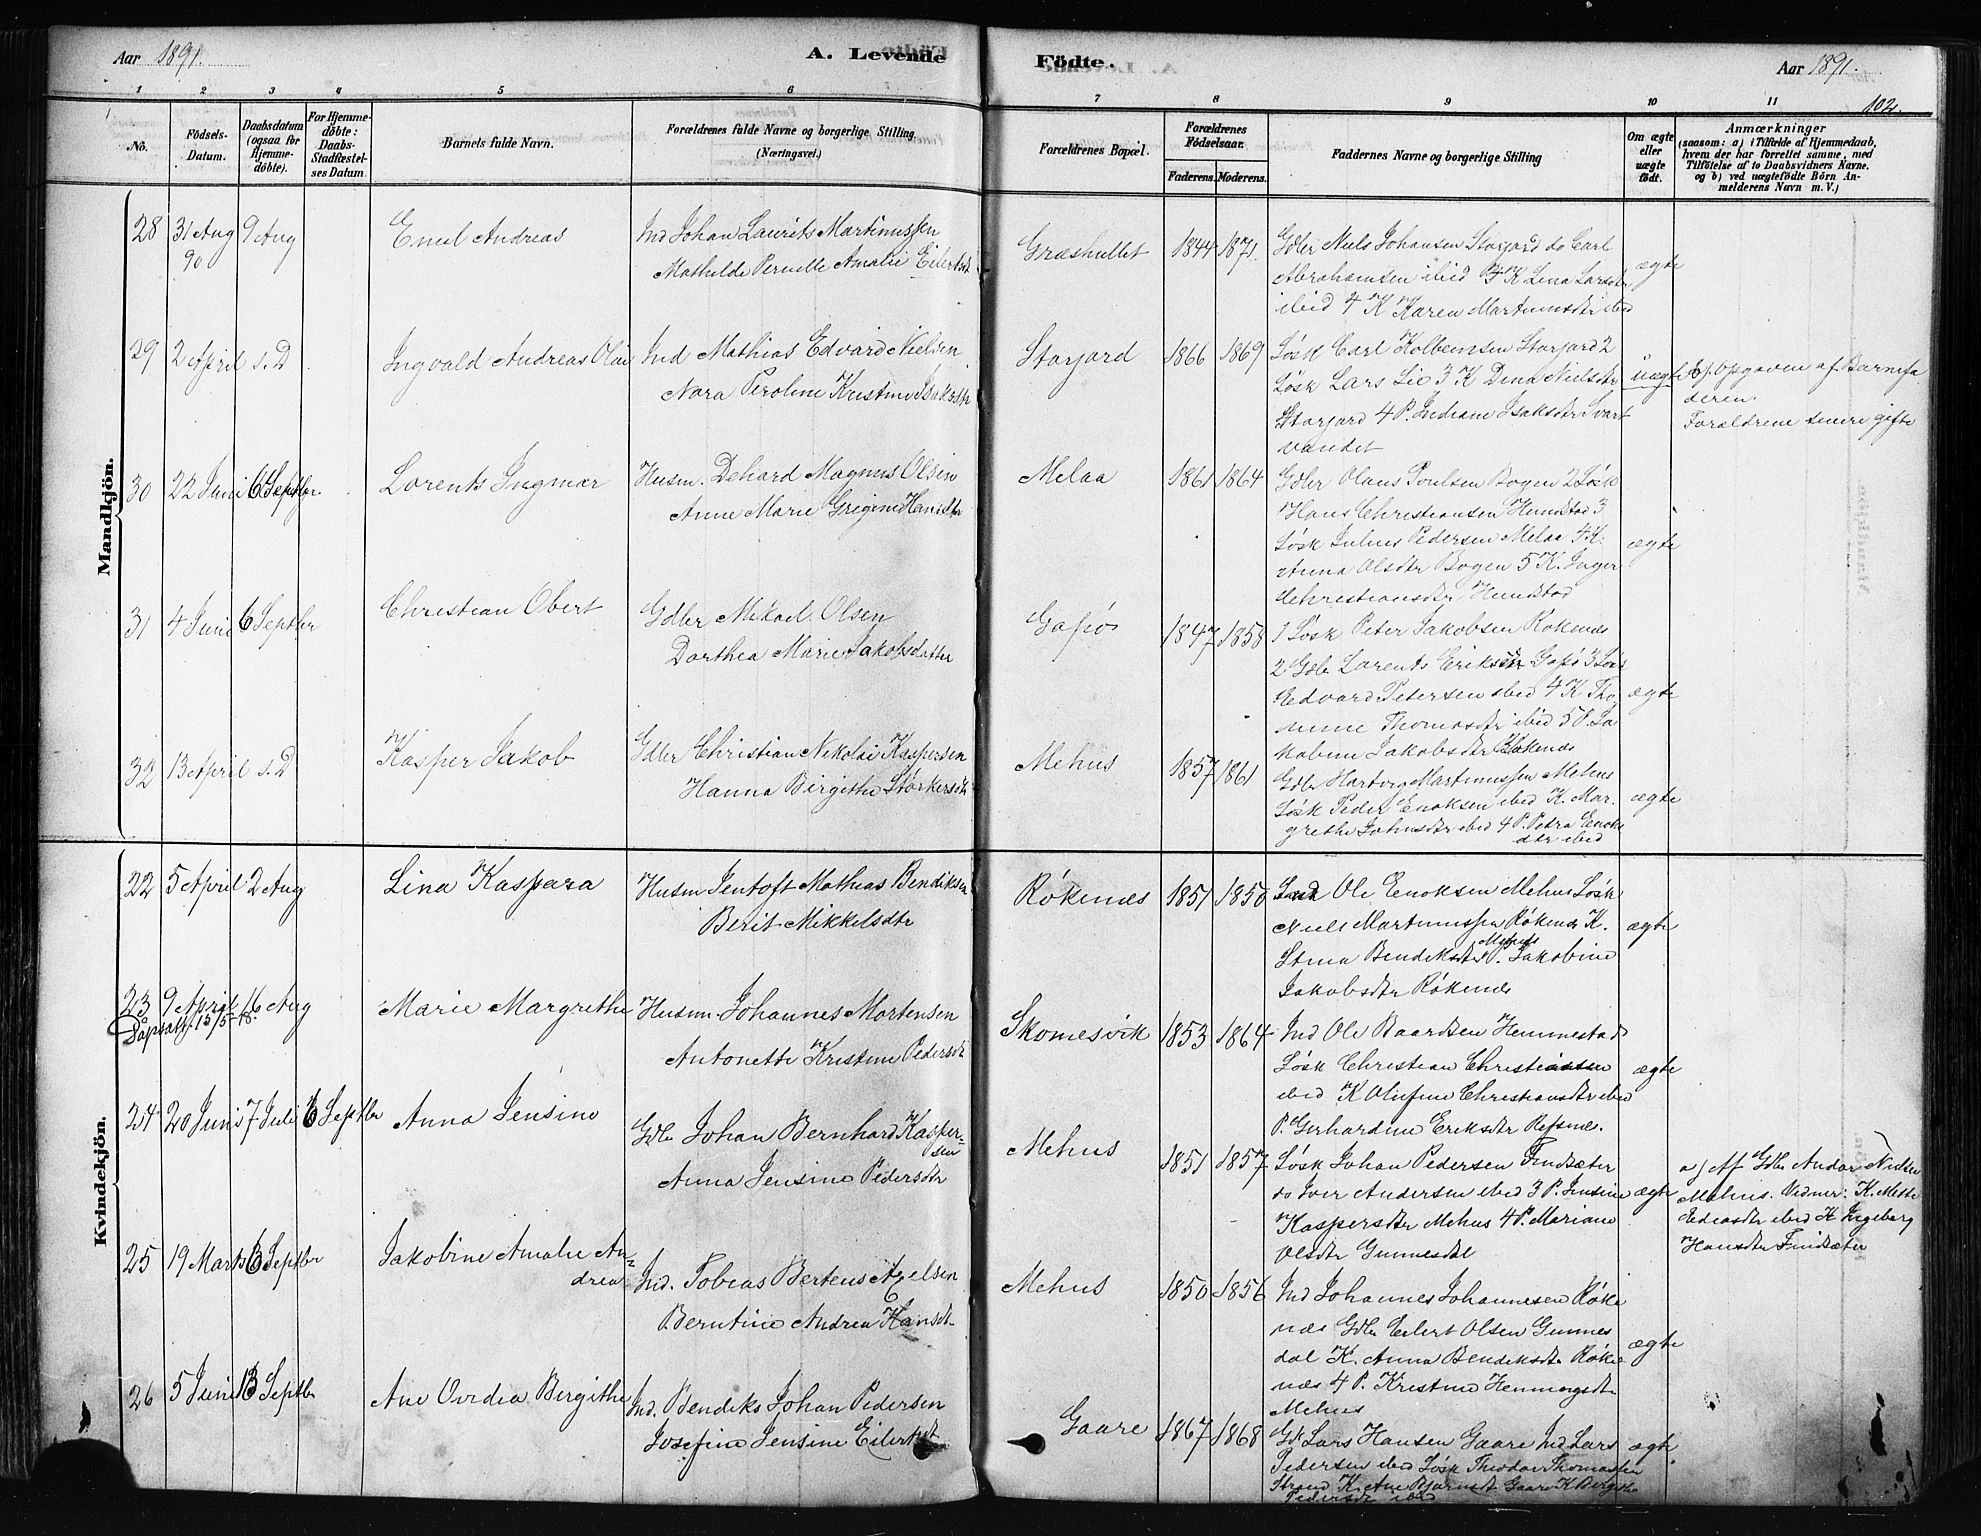 Aar 1891.
A. Levende
Födte.
Aar 1891.
1 2 3 4 5 6 7 8 9 10 11
102.
No.
Födsels-
Datum.
Daabsdatum
(ogsaa for
Hjemme-
döbte).
For Hjemme-
döbte:
Daabs-
Stadfæstel-
ses Datum.
Barnets fulde Navn.
Forældrenes fulde Navne og borgerlige Stilling.
(Næringsvei.)
Forældrenes Bopæl.
Forældrenes
Födselsaar.
Faderens. Moderens.
Faddernes Navne og borgerlige Stilling
Om ægte
eller
uægte
födt.
Anmærkninger
(saasom: a) i Tilfælde af Hjemmedaab,
hvem der har forrettet samme, med
Tilföielse af to Daabsvidners Navne,
og b) ved uægtefödte Börn An-
melderens Navn m. V.)
Mandkjön.
28 31 Aug 90 9 Aug Emil Andreas
Ind Johan Laurits Martinussen
Mathilde Pernelle Amalie Eilertsdt
Græshullet 1844 1871.
Gdbr Niels Johansen Storjord do Carl
Abrahamsen ibid K Lina Larsdtr
ibid 4 K Karen Martinusdtr ibid
ægte
29 2 April s. D Ingvald Andreas Olai
Ind Mathias Edvard Nielsen
Nora Peroline Kristine Isaksdtr
Storjord 1866 1869
Løsk Carl Kolbeinsen Storjord 2
Løsk Lars Lie 3 K Dina Nielsdtr
Storjord 4 P. Indiane Isaksdtr Svart
vandet
uægte
b). Opgaven af Barnefa
deren.
Forældrene senere gifte
30 22 Juni 6 Septbr Lorents Ingmar
Husm. Dehard Magnus Olsen
Anne Marie Grigine Hansdtr
Melaa 1861 1864
Gdbr Olaus Poulsen Bogen 2 Løsk
Hans Christiansen Hundstad 3
Løsk Julius Pedersen Melaa 4 K.
Anna Olsdtr Bogen 5 K. Inger
Christiansdtr Hundstad
ægte
31 4 Juni 6 Septbr Christian Obert
Gdbr Mikael Olsen
Dorthea Marie Jakobsdatter
Gapø 1847 1858
1 Løsk Peter Jakobsen Røkenæs
2 Gdbr Lorents Eriksen Gapø 3 Løsk
Edvard Petersen ibid 4 K Tho
mine Thomasdtr ibid 5 P. Ja
kobine Jakobsdtr Røkenæs
ægte
32 13 April s. D Kasper Jakob
Gdbr Christian Nikolai Kaspersen
Hanna Birgithe Størkersdtr
Mehus 1857 1861
Gdbr Hartvig Martinussen Mehus
Løsk Peder Enoksen ibid K. Mar-
grethe Johnsdtr ibid 4 P. Petra Enoks
dtr ibid
ægte
Kvindekjön.
22 5 April 2 Aug Lina Kaspara
Husm Jentoft Mathias Bendiksen
Berit Mikkelsdtr
Røkenæs 1851 1850
Ole Enoksen Mehus Løsk
Niels Martinussen Røkenæs K.
Stina Bendiksdtr Mehus P. Jakobine
Jakobsdtr Røkenæs
ægte
23 9 April 16 Aug Marie Margrethe
Dåpsatt. 15/5-18.
Husm. Johannes Mortensen
Antonette Kristine Pedersdt
Skomesvik 1853 1864
Ind Ole Baardsen Hemmestad
Løsk Christian Christiansen
ibid K Olufine Christiansdtr ibid
P. Gerhardine Eriksdtr Refsnæs.
ægte
24 20 Juni 7 Juli 6 Septbr Anna Jensine
Gdbr Johan Bernhard Kasper-
sen
Anna Jensine Pedersdtr
Mehus 1851 1857
Løsk Johan Pedersen Findsæter
do Iver Andersen ibid 3 P. Jensine
Kaspersdtr Mehus 4 P. Mariane
Olsdtr Gunnesdal
ægte
a) Af Gdbr Andor Nielsen
Mehus. Vidner: K. Mette
Ediasdtr ibid K Ingeborg
Hansdtr Findsæter
25 19 Marts 13 Septbr Jakobine Amalie An-
drea
Ind. Tobias Berteus Axelsen
Berntine Andrea Hansdt.
Mehus 1850 1856
Ind Johannes Johannesen Røke
næs Gdbr Eilert Olsen Gunnes
dal K. Anna Bendiksdtr Røke
næs 4 P. Kristine Henningsdtr
Mehus
ægte
26 5 Juni 13 Septbr Ane Ovidia Birgithe
Ind. Bendiks Johan Pedersen
Josefine Jensine Eilertsdt
Gaare 1867 1868
Gdb Lars Hansen Gaare Ind Lars
Pedersen ibid Løsk Theodor Thomassen
Strand K. Ane Bjørnsdt Gaare K Birgithe
Pedersdtr ibid
ægte